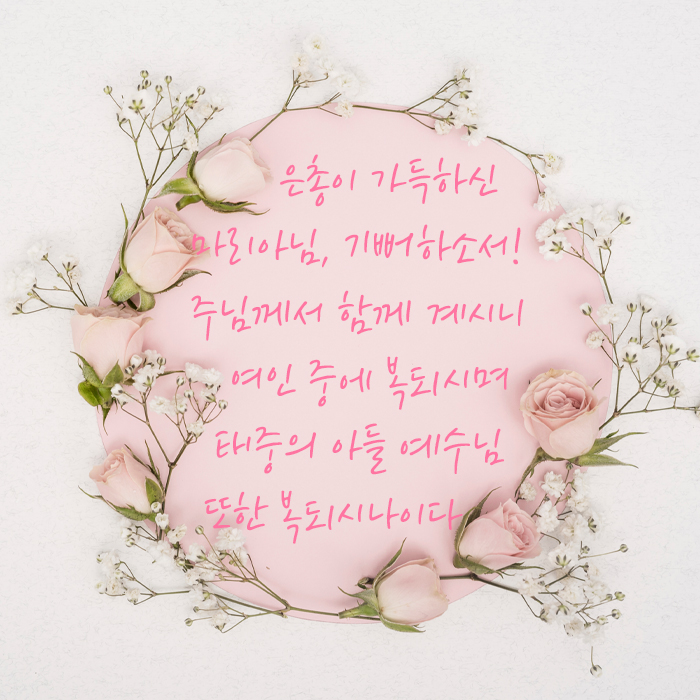 은총이 가득하신
마리아님, 기뻐하소서!
주님께서 함께 계시니
여인 중에 복되시며
태중의 아들 예수님
또한 복되시나이다